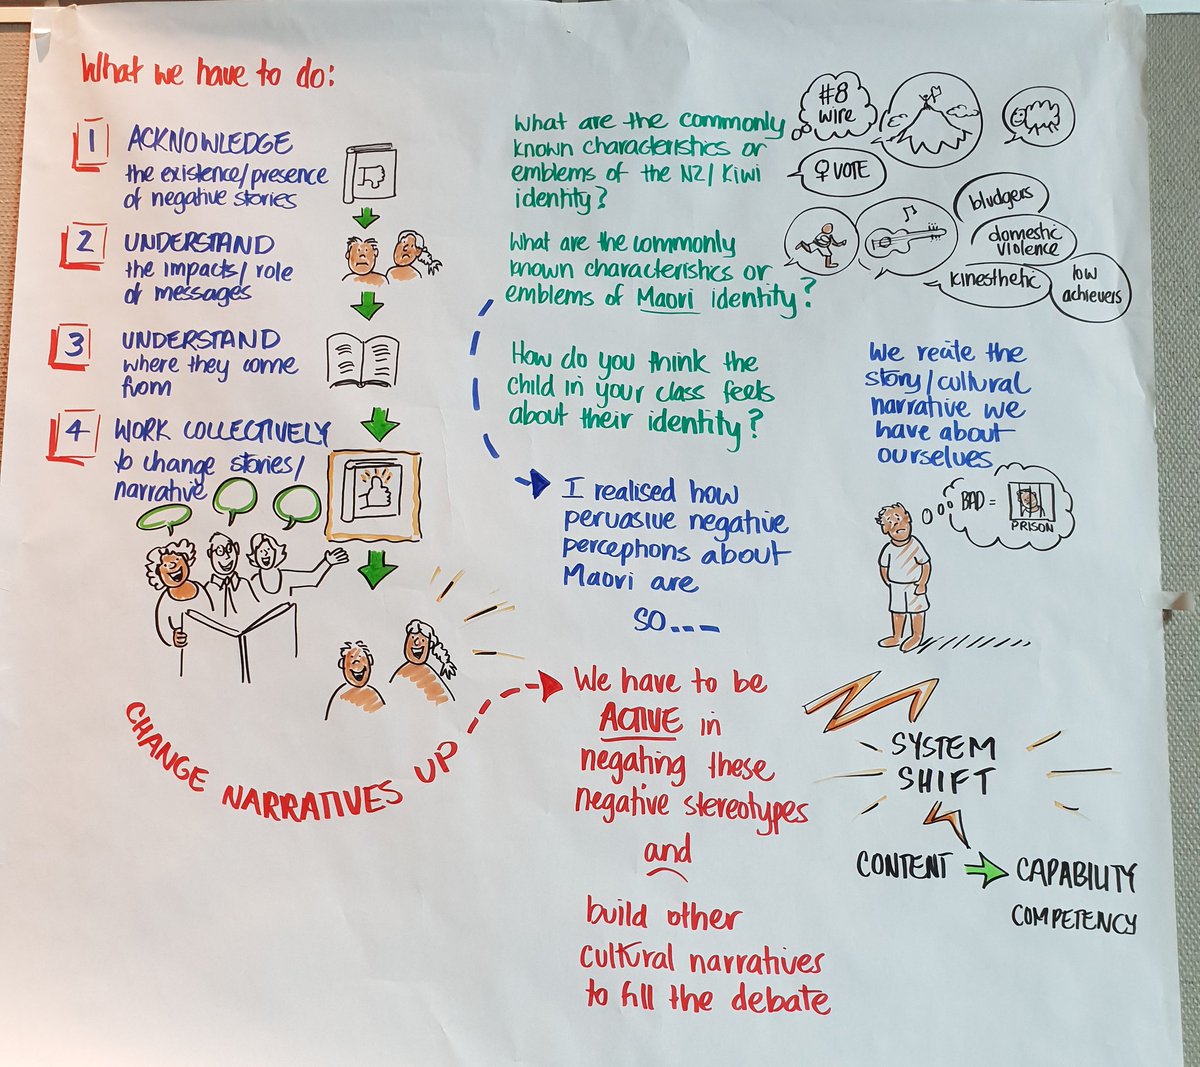 What we have to do:
1 ACKNOWLEDGE
the existence/presence
of negative stories
2 UNDERSTAND
the impacts/role
of messages
3 UNDERSTAND
where they come
from
4 WORK COLLECTIVELY
to change stories/
narrative
CHANGE NARRATIVES UP
What are the commonly
known characteristics or
emblems of the NZ/Kiwi
identity?
#8
wire
♀ VOTE
What are the commonly
known characteristics or
emblems of Maori identity?
bludgers
domestic
violence
kinesthetic
low
achievers
How do you think the
child in your class feels
about their identity?
I realised how
pervasive negative
perceptions about
Maori are
SO....
We have to be
ACTIVE in
negating these
negative stereotypes
and
build other
cultural narratives
to fill the debate
We reate the
story/cultural
narrative we
have about
ourselves
BAD =
PRISON
SYSTEM
SHIFT
CONTENT
CAPABILITY
COMPETENCY